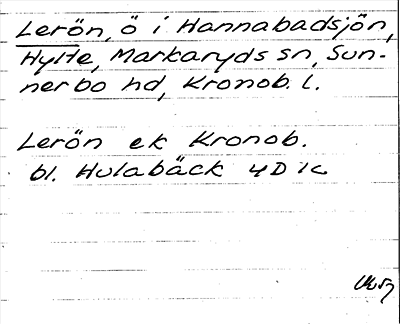 Lerön, ö i Hannabadsjön,
Hylte, Markaryds sn, Sun-
nerbo hd, Kronob. l.
Lerön ek Kronob.
bl. Hulabäck 4D 1c